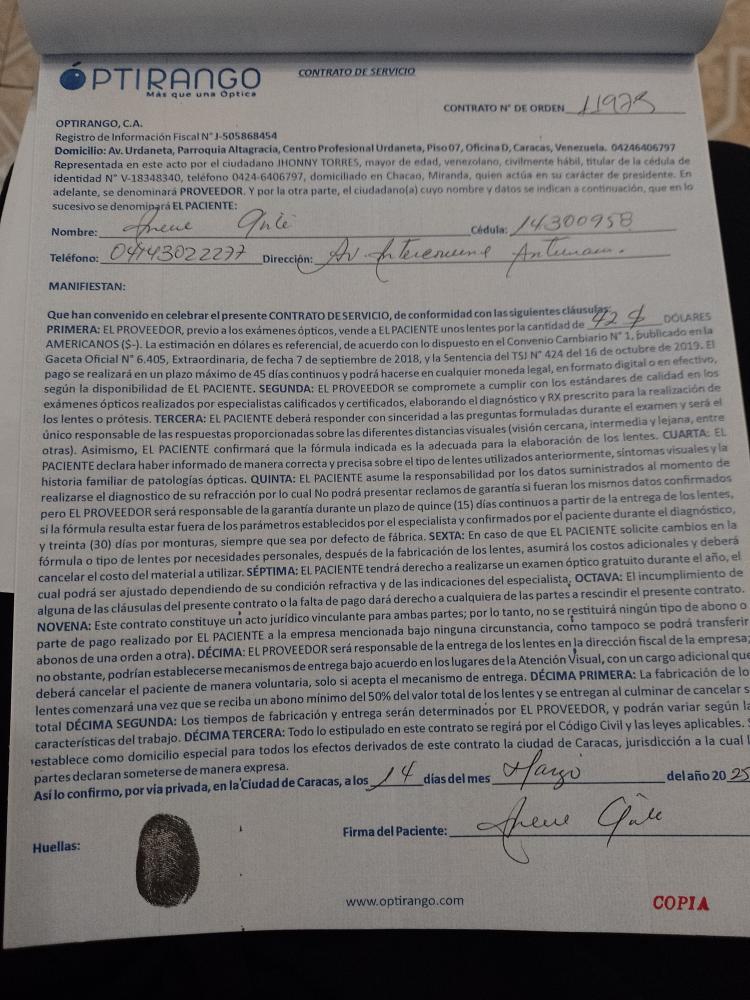 ÓPTIRANGO
Más que una Óptica
CONTRATO DE SERVICIO
CONTRATO N° DE ORDEN 11973
OPTIRANGO, C.A.
Registro de Información Fiscal N° J-505868454
Domicilio: Av. Urdaneta, Parroquia Altagracia, Centro Profesional Urdaneta, Piso 07, Oficina D, Caracas, Venezuela. 04246406797
Representada en este acto por el ciudadano JHONNY TORRES, mayor de edad, venezolano, civilmente hábil, titular de la cédula de
identidad N° V-18348340, teléfono 0424-6406797, domiciliado en Chacao, Miranda, quien actúa en su carácter de presidente. En
adelante, se denominará PROVEEDOR. Y por la otra parte, el ciudadano(a) cuyo nombre y datos se indican a continuación, que en lo
sucesivo se denominará EL PACIENTE:
Nombre: Cédula: 14300958
Teléfono: 04143022277 Dirección: Av
MANIFIESTAN:
Que han convenido en celebrar el presente CONTRATO DE SERVICIO, de conformidad con las siguientes cláusulas:
PRIMERA: EL PROVEEDOR, previo a los exámenes ópticos, vende a EL PACIENTE unos lentes por la cantidad de 92 $ DÓLARES
AMERICANOS ($-). La estimación en dólares es referencial, de acuerdo con lo dispuesto en el Convenio Cambiario N° 1, publicado en la
Gaceta Oficial N° 6.405, Extraordinaria, de fecha 7 de septiembre de 2018, y la Sentencia del TSJ N° 424 del 16 de octubre de 2019. El
pago se realizará en un plazo máximo de 45 días continuos y podrá hacerse en cualquier moneda legal, en formato digital o en efectivo,
según la disponibilidad de EL PACIENTE. SEGUNDA: EL PROVEEDOR se compromete a cumplir con los estándares de calidad en los
exámenes ópticos realizados por especialistas calificados y certificados, elaborando el diagnóstico y RX prescrito para la realización de
los lentes o prótesis. TERCERA: EL PACIENTE deberá responder con sinceridad a las preguntas formuladas durante el examen y será el
único responsable de las respuestas proporcionadas sobre las diferentes distancias visuales (visión cercana, intermedia y lejana, entre
otras). Asimismo, EL PACIENTE confirmará que la fórmula indicada es la adecuada para la elaboración de los lentes. CUARTA: EL
PACIENTE declara haber informado de manera correcta y precisa sobre el tipo de lentes utilizados anteriormente, síntomas visuales y la
historia familiar de patologías ópticas. QUINTA: EL PACIENTE asume la responsabilidad por los datos suministrados al momento de
realizarse el diagnostico de su refracción por lo cual No podrá presentar reclamos de garantía si fueran los mismos datos confirmados
pero EL PROVEEDOR será responsable de la garantía durante un plazo de quince (15) días continuos a partir de la entrega de los lentes,
si la fórmula resulta estar fuera de los parámetros establecidos por el especialista y confirmados por el paciente durante el diagnóstico,
y treinta (30) días por monturas, siempre que sea por defecto de fábrica. SEXTA: En caso de que EL PACIENTE solicite cambios en la
fórmula o tipo de lentes por necesidades personales, después de la fabricación de los lentes, asumirá los costos adicionales y deberá
cancelar el costo del material a utilizar. SÉPTIMA: EL PACIENTE tendrá derecho a realizarse un examen óptico gratuito durante el año, el
cual podrá ser ajustado dependiendo de su condición refractiva y de las indicaciones del especialista, OCTAVA: El incumplimiento de
alguna de las cláusulas del presente contrato o la falta de pago dará derecho a cualquiera de las partes a rescindir el presente contrato.
NOVENA: Este contrato constituye un acto jurídico vinculante para ambas partes; por lo tanto, no se restituirá ningún tipo de abono o
parte de pago realizado por EL PACIENTE a la empresa mencionada bajo ninguna circunstancia, como tampoco se podrá transferir
abonos de una orden a otra). DÉCIMA: EL PROVEEDOR será responsable de la entrega de los lentes en la dirección fiscal de la empresa;
no obstante, podrían establecerse mecanismos de entrega bajo acuerdo en los lugares de la Atención Visual, con un cargo adicional que
deberá cancelar el paciente de manera voluntaria, solo si acepta el mecanismo de entrega. DÉCIMA PRIMERA: La fabricación de lo
lentes comenzará una vez que se reciba un abono mínimo del 50% del valor total de los lentes y se entregan al culminar de cancelar s
total DÉCIMA SEGUNDA: Los tiempos de fabricación y entrega serán determinados por EL PROVEEDOR, y podrán variar según la
características del trabajo. DÉCIMA TERCERA: Todo lo estipulado en este contrato se regirá por el Código Civil y las leyes aplicables. S
establece como domicilio especial para todos los efectos derivados de este contrato la ciudad de Caracas, jurisdicción a la cual l
partes declaran someterse de manera expresa.
Así lo confirmo, por via privada, en la Ciudad de Caracas, a los 14 días del mes Marzo del año 2025
Firma del Paciente:
Huellas:
www.optirango.com
COPIA